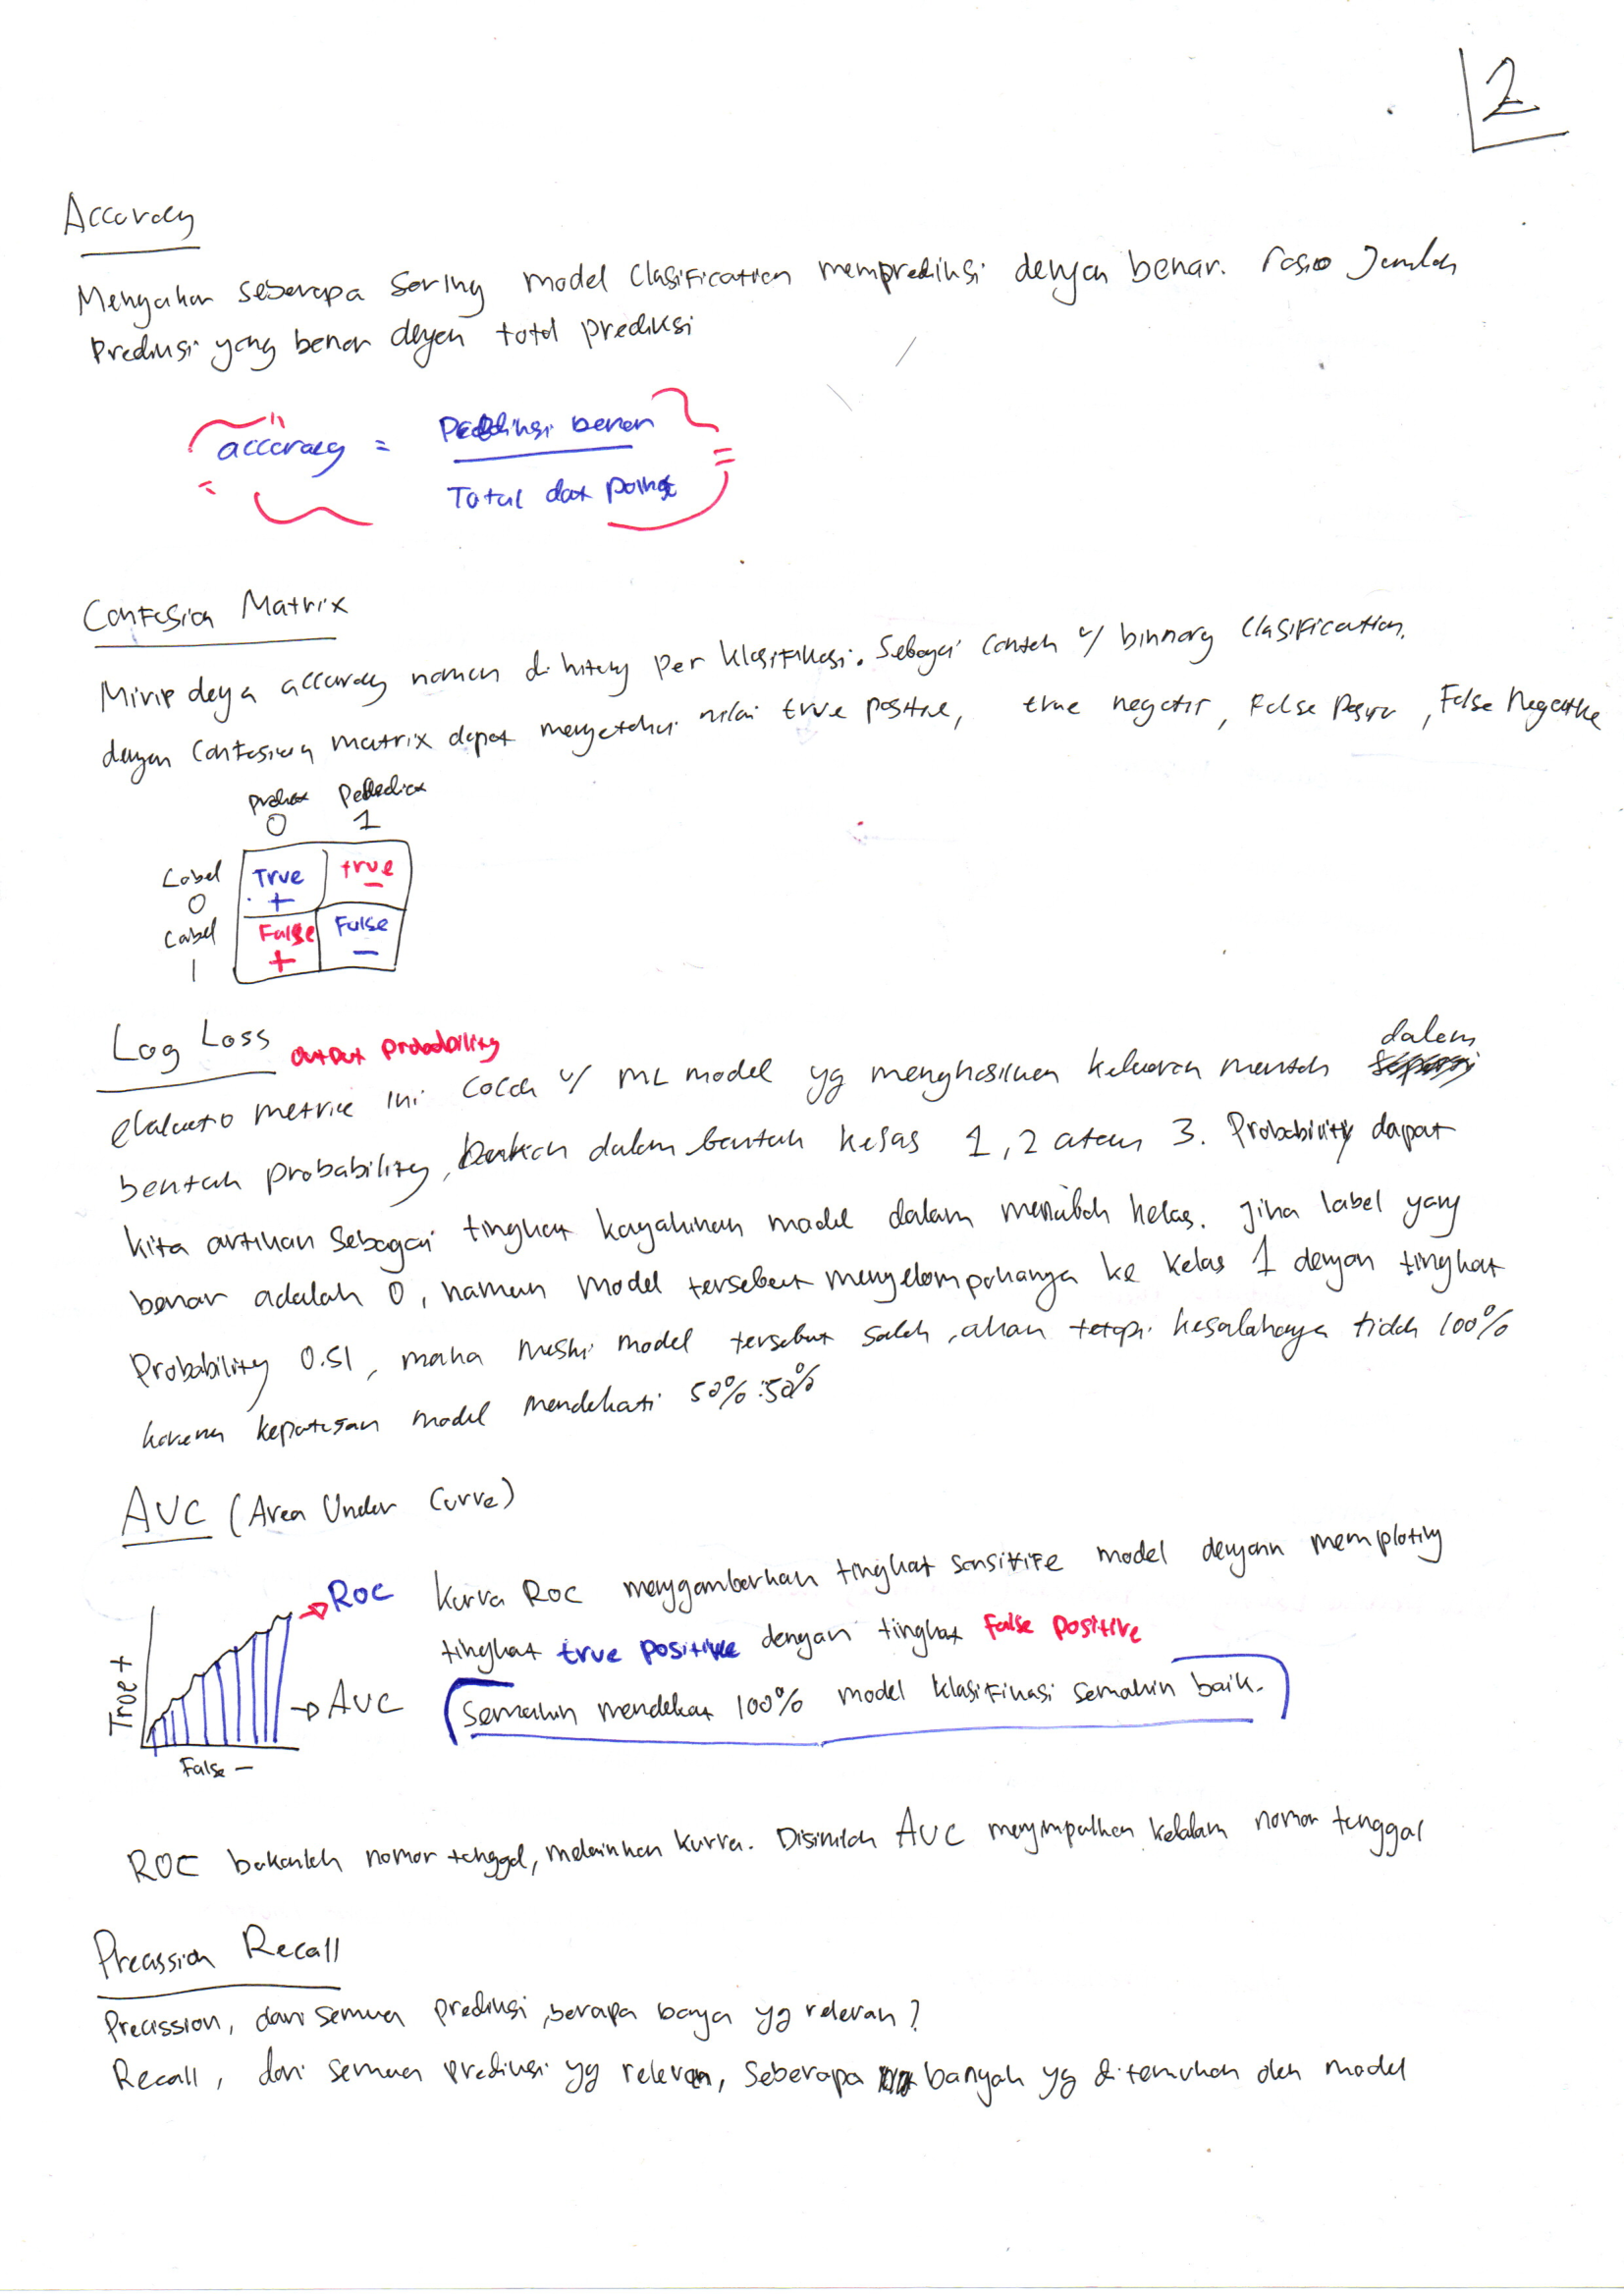 2
Accuracy
Mengukur seberapa sering model Clasification memprediksi dengan benar. rasio Jumlah
Prediksi yang benar dengan total prediksi
accuracy = Prediksi benar
Total dat point
Confusion Matrix
Mirip denga accuracy namun di hitung per klasifikasi. Sebagai contoh u/ binnary Clasification.
dengan Confusion matrix dapat mengetahui nilai true positive, true negatif, False Positiv, False Negative
Predict Predict
0 1
Label True true
0 + -
Label False False
1 + -
Log Loss output probability
evaluatio metrice ini cocok u/ ML model yg menghasilkan keluaran mentah dalam
bentuk probability, bukan dalam bentuk kelas 1, 2 atau 3. Probability dapat
kita artikan Sebagai tingkat kayakinan model dalam menabak kelas. Jika label yang
benar adalah 0, namun model tersebut mengelompokanya ke kelas 1 dengan tingkat
Probability 0.51, maka meski model tersebut salah, akan tetapi kesalahanya tidak 100%
karena keputusan model mendekati 50% : 50%
AUC (Area Under Curve)
ROC
AUC
True +
False -
Kurva ROC menggambarkan tingkat sensitife model dengann memploting
tingkat true positive dengan tingkat false positive
Semakin mendekat 100% model klasifikasi semakin baik.
ROC bukanlah nomor tunggal, melainkan kurva. Disinilah AUC menyimpulkan kedalam nomor tunggal
Precission Recall
Precission, dari semua prediksi, berapa banya yg relevan?
Recall, dari semua prediksi yg relevan, Seberapa banyak yg ditemukan oleh model